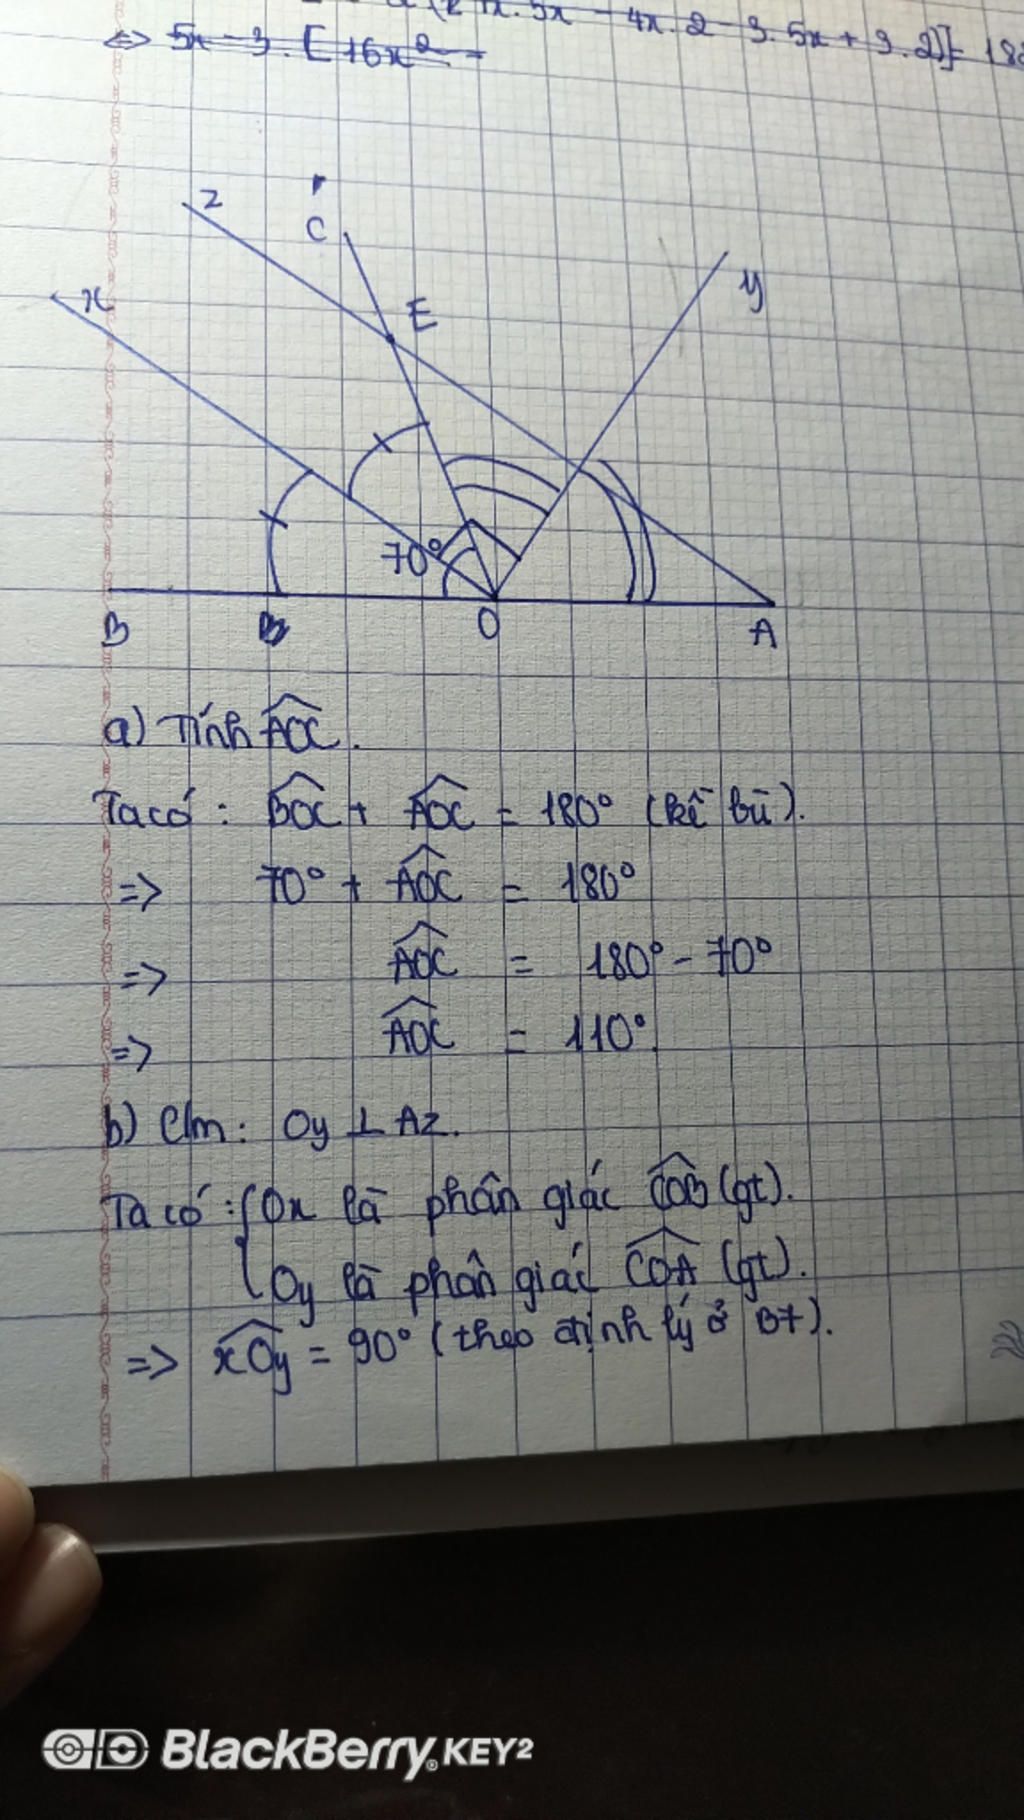 4x. 2 - 3. 5x + 3. 2)] = 18
<=> 5x - 3. [16x² -
z
C
x
E
y
70°
B
O
A
a) Tính AOC.
Ta có: BOC + AOC = 180° (kề bù).
=> 70° + AOC = 180°
=> AOC = 180° - 70°
=> AOC = 110°.
b) C/m: Oy ⊥ Az.
Ta có: { Ox là phân giác COB (gt).
Oy là phân giác COA (gt).
=> xOy = 90° (theo định lý ở B7).
BlackBerry KEY²